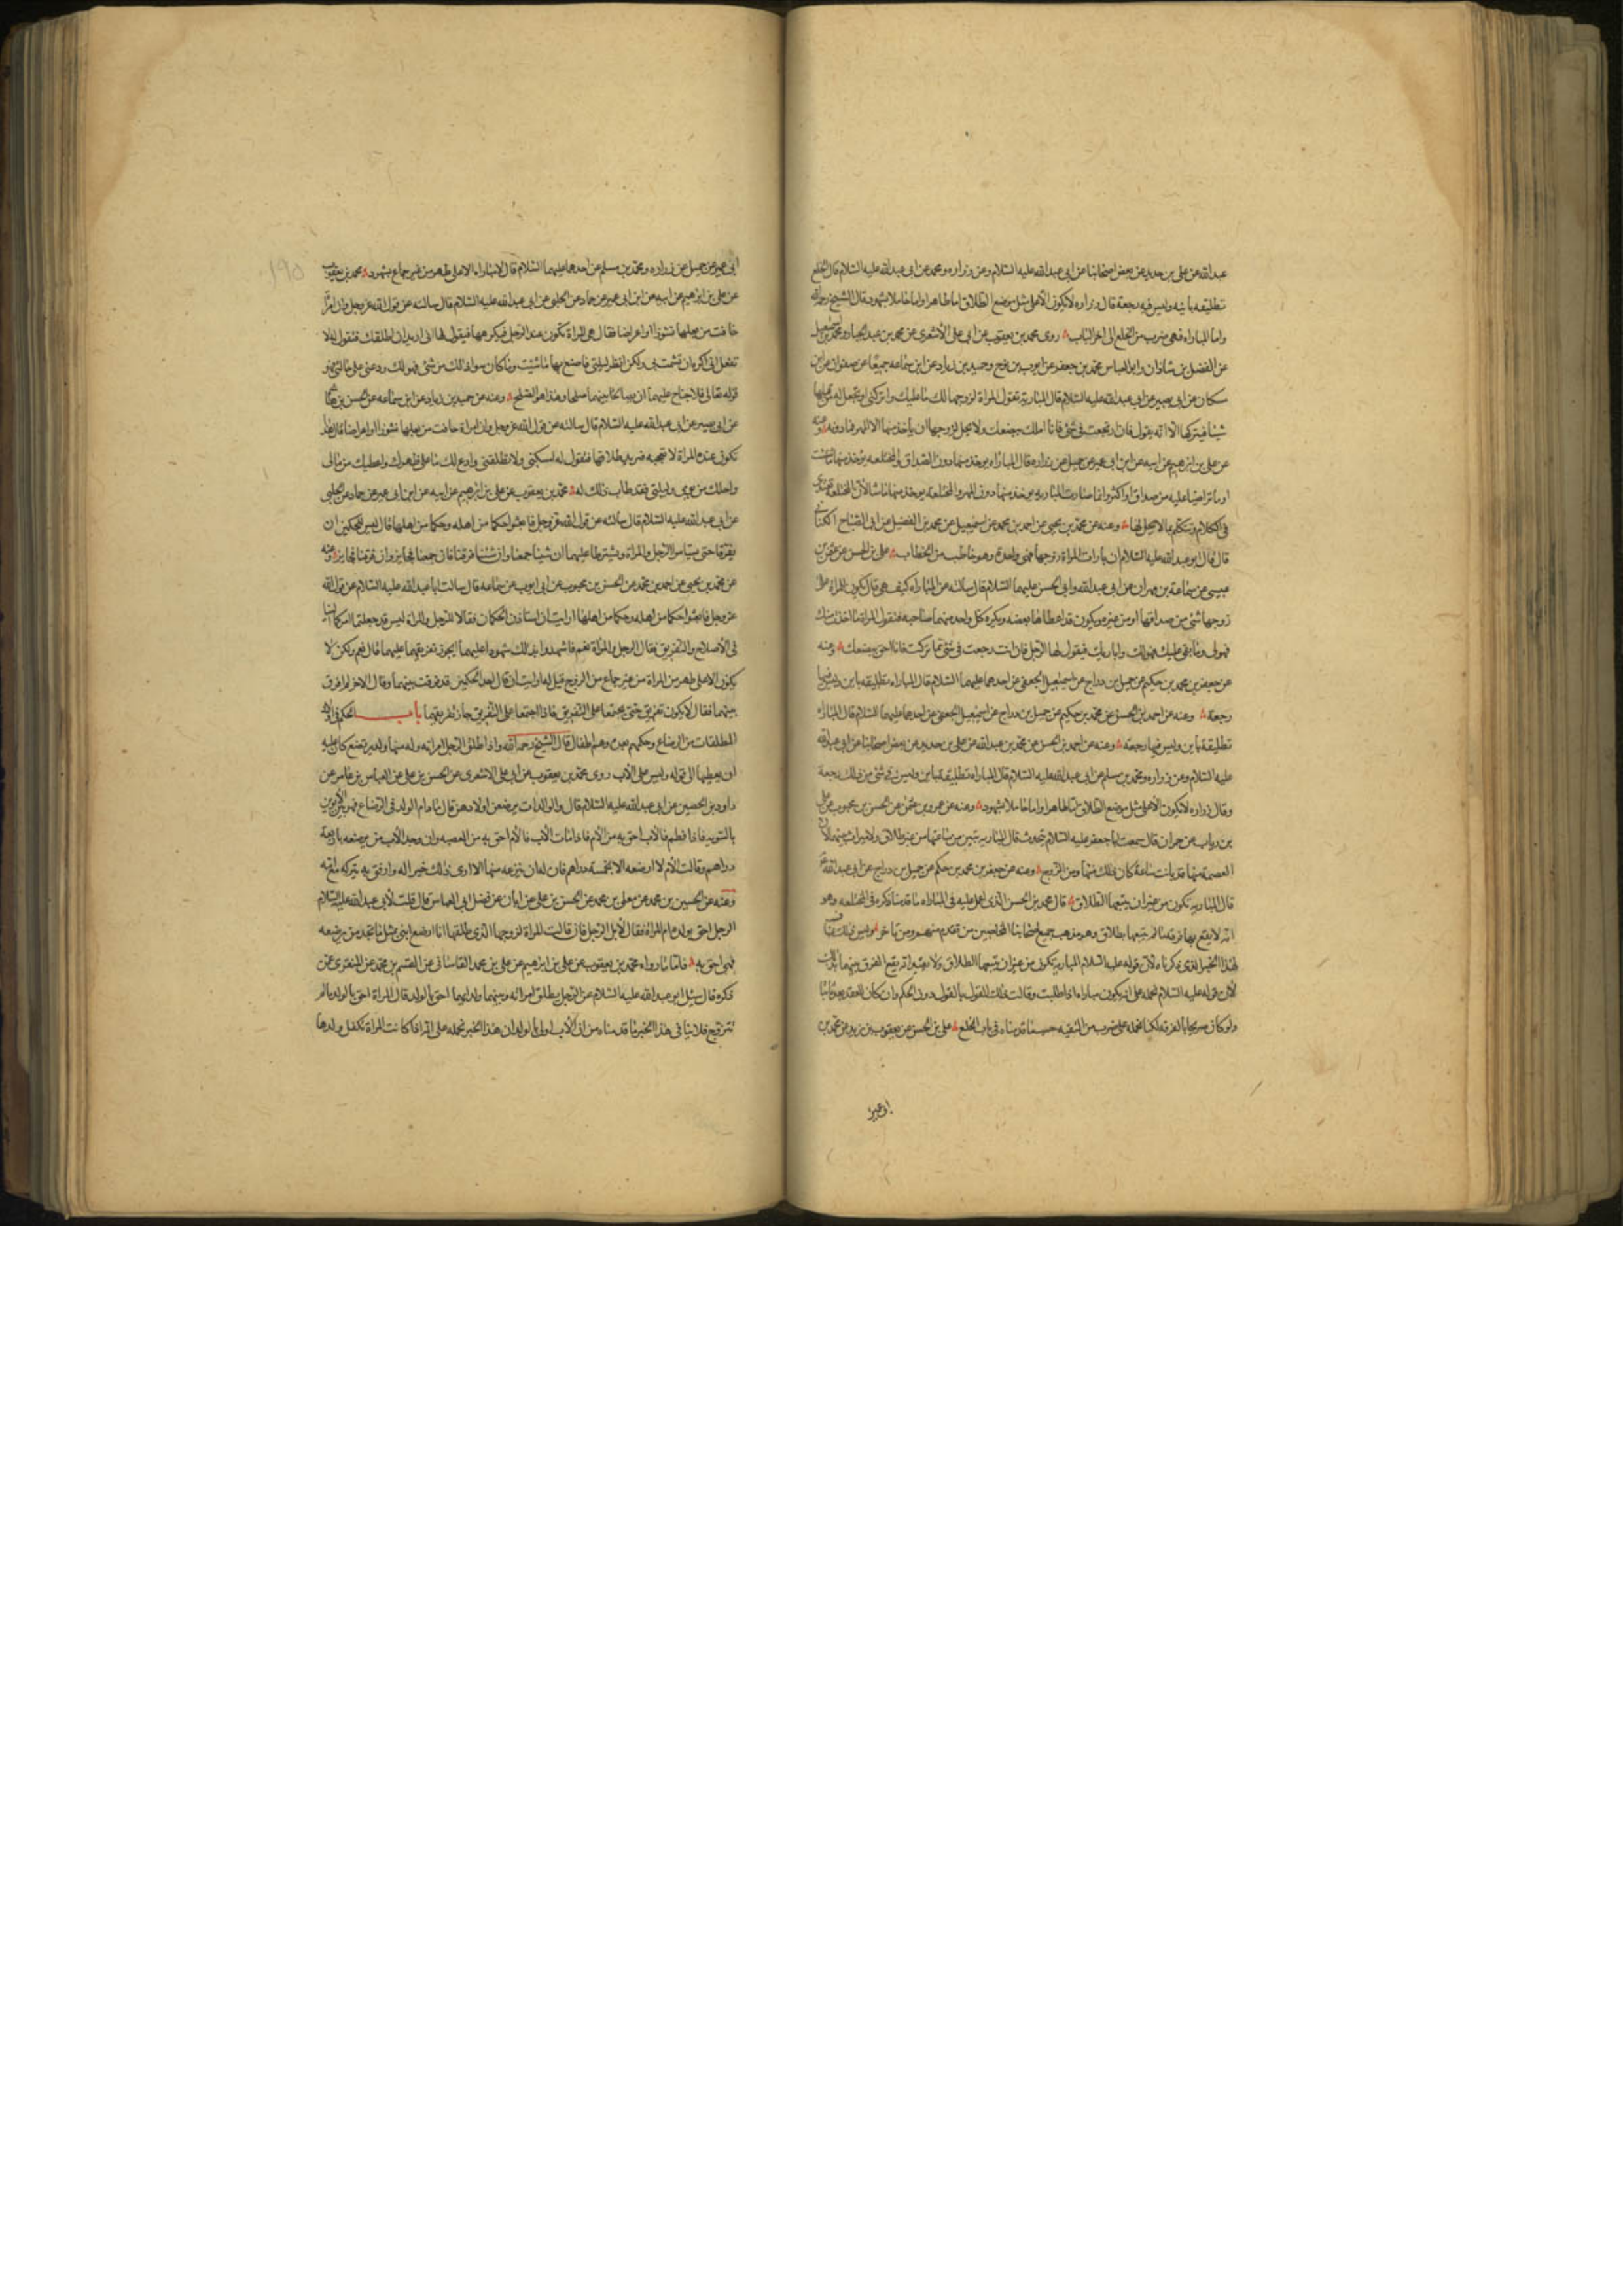 عبد الله عن علي بن حديد عن بعض اصحابنا عن ابي عبد الله عليه السلام وعن زراره ومحمد عن ابي عبد الله عليه السلام قال الخلع
تطليقه باينه وليس فيه رجعة قال زراره لا تكون الا على مثل موضع الطلاق اما طاهرا واما حاملا بشهود قال الشيخ رحمه الله
واما المباراه فهي ضرب من الخلع الى اخر الباب روى محمد بن يعقوب عن ابي علي الأشعري عن محمد بن عبد الجبار ومحمد بن اسمعيل
عن الفضل بن شاذان وابو العباس محمد بن جعفر عن ايوب بن نوح وحميد بن زياد عن ابن سماعه جميعا عن صفوان عن ابن
سكان عن ابي بصير عن ابي عبد الله عليه السلام قال المبارية تقول المراة لزوجها لك ما عليك واتركني او تجعل له من قبلها
شيئا فيتركها الا انه يقول فان ارتجعت في شئ فانا املك ببضعك ولا يحل لزوجها ان ياخذ منها الا المهر فما دونه وعنه
عن علي بن ابرهيم عن ابيه عن ابن ابي عمير عن جميل عن زراره قال المباراه يوخذ منها دون الصداق والمختلعه يوخذ منها ما شئت
او ما تراضيا عليه من صداق او اكثر وانما صارت المباريه يوخذ منها دون المهر والمختلعة يوخذ منها ما شاء لأن المختلعة تعتدي
في الكلام وتتكلم بما لا يحل لها وعنه عن محمد بن يحيى عن احمد بن محمد عن اسمعيل عن محمد بن الفضيل عن ابي الصباح الكناني
قال قال ابو عبد الله عليه السلام ان بارات المراة زوجها فهي واحدة وهو خاطب من الخطاب علي بن الحسن عن عثمن بن
عيسى عن سماعة بن مهران عن ابي عبد الله وابي الحسن عليهما السلام قال سالته عن المباراه كيف هي قال يكون للمراة على
زوجها شئ من صداقها او من غيره ويكون قد اعطاها بعضه ويكره كل واحد منهما صاحبه فتقول المراة ما اخذت منك
فهو لي وما بقي عليك فهو لك واباريك فيقول لها الرجل فان انت رجعت في شئ مما تركت فانا احق ببضعك وعنه
عن جعفر بن محمد بن حكيم عن جميل بن دراج عن اسمعيل الجعفي عن احدهما عليهما السلام قال المباراه تطليقه باين وليس فيها
رجعة وعنه عن احمد بن الحسن عن محمد بن حكيم عن جميل بن دراج عن اسمعيل الجعفي عن احدهما عليهما السلام قال المباراه
تطليقة باين وليس فيها رجعة وعنه عن احمد بن الحسن عن محمد بن عبد الله عن علي بن حديد عن بعض اصحابنا عن ابي عبد الله
عليه السلام وعن زراره ومحمد بن مسلم عن ابي عبد الله عليه السلام قال المباراه تطليقة باين وليس في شئ من ذلك رجعة
وقال زراره لا تكون الا على مثل موضع الطلاق اما طاهرا واما حاملا بشهود وعنه عن عمرو بن عثمن عن الحسن بن محبوب عن علي
بن رياب عن حمران قال سمعت ابا جعفر عليه السلام يتحدث قال المباريه تبين من ساعتها من غير طلاق ولا ميراث بينهما لأن
العصمة منهما قد بانت ساعة كان ذلك منها ومن الزوج وعنه عن جعفر بن محمد بن حكم عن جميل بن دراج عن ابي عبد الله
قال المباريه تكون من غير ان يتبعها الطلاق قال محمد بن الحسن الذي اعمل عليه في المباراه ما قدمنا ذكره في المختلعه وهو
انه لا يقع بها فرقه ما لم يتبعها بطلاق وهو مذهب جميع اصحابنا المحصلين من تقدم منهم ومن تاخر وليس
لهذا الخبر الذي ذكرناه لأن قوله عليه السلام المباريه تكون من غير ان يتبعها الطلاق ولا انه يقع الفرق بينهما
لأن قوله عليه السلام نحمله على انه يكون مباراه اذا طلبت وقالت ذلك القول بالقول دون الحكم وان كان العقد بعد ثابتا
ولو كان صريحا بالفرقه لكنا نحمله على ضرب من التقيه حسب ما قدمناه في باب الخلع علي بن الحسن عن يعقوب بن يزيد عن محمد بن
ابي عمير
١٩٥
ابي عمير عن جميل عن زراره ومحمد بن مسلم عن احدهما عليهما السلام قال لا مباراه الا على طهر من غير جماع بشهود محمد بن يعقوب
عن علي بن ابرهيم عن ابيه عن ابن ابي عمير عن حماد عن الحلبي عن ابي عبد الله عليه السلام قال سالته عن قول الله عز وجل وان امراة
خافت من بعلها نشوزا او اعراضا فقال هي المراة تكون عند الرجل فيكرهها فيقول لها اني اريد ان اطلقك فتقول له لا
تفعل اني اكره ان تشمت بي ولكن انظر ليلتي فاصنع بها ما شئت وما كان سوا ذلك من شئ فهو لك ودعني على حالتي فهو
قوله تعالى فلا جناح عليهما ان يصالحا بينهما صلحا وهذا هو الصلح وعنه عن حميد بن زياد عن ابن سماعه عن الحسن بن هاشم
عن ابي بصير عن ابي عبد الله عليه السلام قال سالته عن قول الله عز وجل وان امراة خافت من بعلها نشوزا او اعراضا قال هذا
تكون عنده المراة لا تعجبه فيريد طلاقها فتقول له امسكني ولا تطلقني وادع لك ما على ظهرك واعطيك من مالي
واحلك من يومي وليلتي فقد طاب ذلك له محمد بن يعقوب عن علي بن ابرهيم عن ابيه عن ابن ابي عمير عن حماد عن الحلبي
عن ابي عبد الله عليه السلام قال سالته عن قول الله عز وجل فابعثوا حكما من اهله وحكما من اهلها قال ليس للحكمين ان
يفرقا حتى يستامرا الرجل والمراة ويشترطا عليهما ان شينا جمعنا وان شئنا فرقنا فان جمعنا فجايز وان فرقنا فجايز وعنه
عن محمد بن يحيى عن احمد بن محمد عن الحسن بن محبوب عن ابي ايوب عن سماعه قال سالت ابا عبد الله عليه السلام عن قول الله
عز وجل فابعثوا حكما من اهله وحكما من اهلها ارايت ان استاذن الحكمان فقالا للرجل والمراة اليس قد جعلتما امركما الينا
في الاصلاح والتفريق فقال الرجل والمراة نعم فاشهدا بذلك شهودا عليهما ايجوز تفريقهما عليهما قال نعم ولكن لا
يكون الا على طهر من المراة من غير جماع من الزوج قيل له ارايت ان قال احد الحكمين قد فرقت بينهما وقال الاخر لم افرق
بينهما فقال لا يكون تفريق حتى يجتمعا على التفريق فاذا اجتمعا على التفريق جاز تفريقهما باب الحكم في اولاد
المطلقات من الرضاع وحكمهم بعده وهم اطفال قال الشيخ رحمه الله واذا طلق الرجل امراته وله منها ولد يرتضع كان عليه
ان يعطيها الى قوله وليس على الأب روى محمد بن يعقوب عن ابي علي الاشعري عن الحسن بن علي عن العباس بن عامر عن
داود بن الحصين عن ابي عبد الله عليه السلام قال والوالدات يرضعن اولادهن قال ما دام الولد في الرضاع فهو بين الابوين
بالسويه فاذا فطم فالأب احق به من الأم فاذا مات الأب فالأم احق به من العصبه وان وجد الأب من يرضعه باربعة
دراهم وقالت الأم لا ارضعه الا بخمسة دراهم فان له ان ينزعه منها الا ان ذلك خير له وارفق به يتركه مع امه
وعنه عن الحسين بن محمد عن معلى بن محمد عن الحسن بن علي عن ابان عن فضل ابي العباس قال قلت لأبي عبد الله عليه السلام
الرجل احق بولده ام المراة فقال لا بل الرجل فان قالت المراة لزوجها الذي طلقها انا ارضع ابني بمثل ما تجد من يرضعه
فهي احق به فاما ما رواه محمد بن يعقوب عن علي بن ابرهيم عن علي بن محمد القاساني عن القسم بن محمد عن المنقري عمن
ذكره قال سئل ابو عبد الله عليه السلام عن الرجل يطلق امراته وبينهما ولد ايهما احق بالولد قال المراة احق بالولد ما لم
تتزوج فلا ينافي هذا الخبر ما قدمناه من ان الأب اولى بالولد ان هذا الخبر نحمله على انه اذا كانت المراة تكفل ولدها